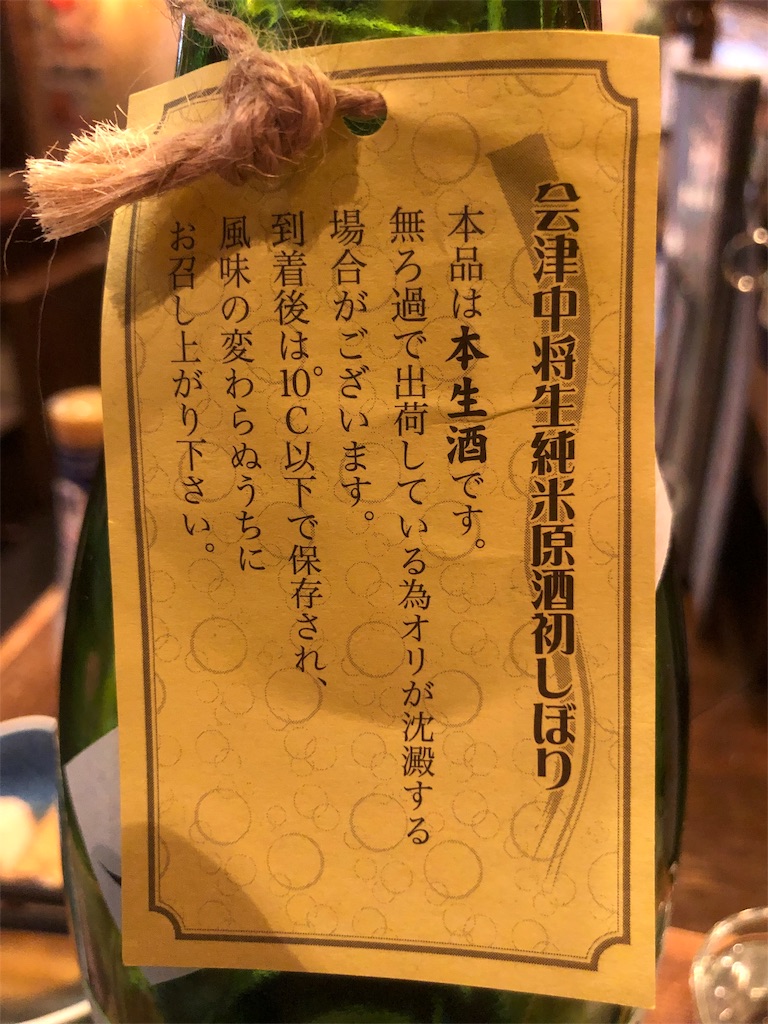 会津中将生純米原酒初しぼり
本品は本生酒です。
無ろ過で出荷している為オリが沈澱する
場合がございます。
到着後は10°C以下で保存され、
風味の変わらぬうちに
お召し上がり下さい。